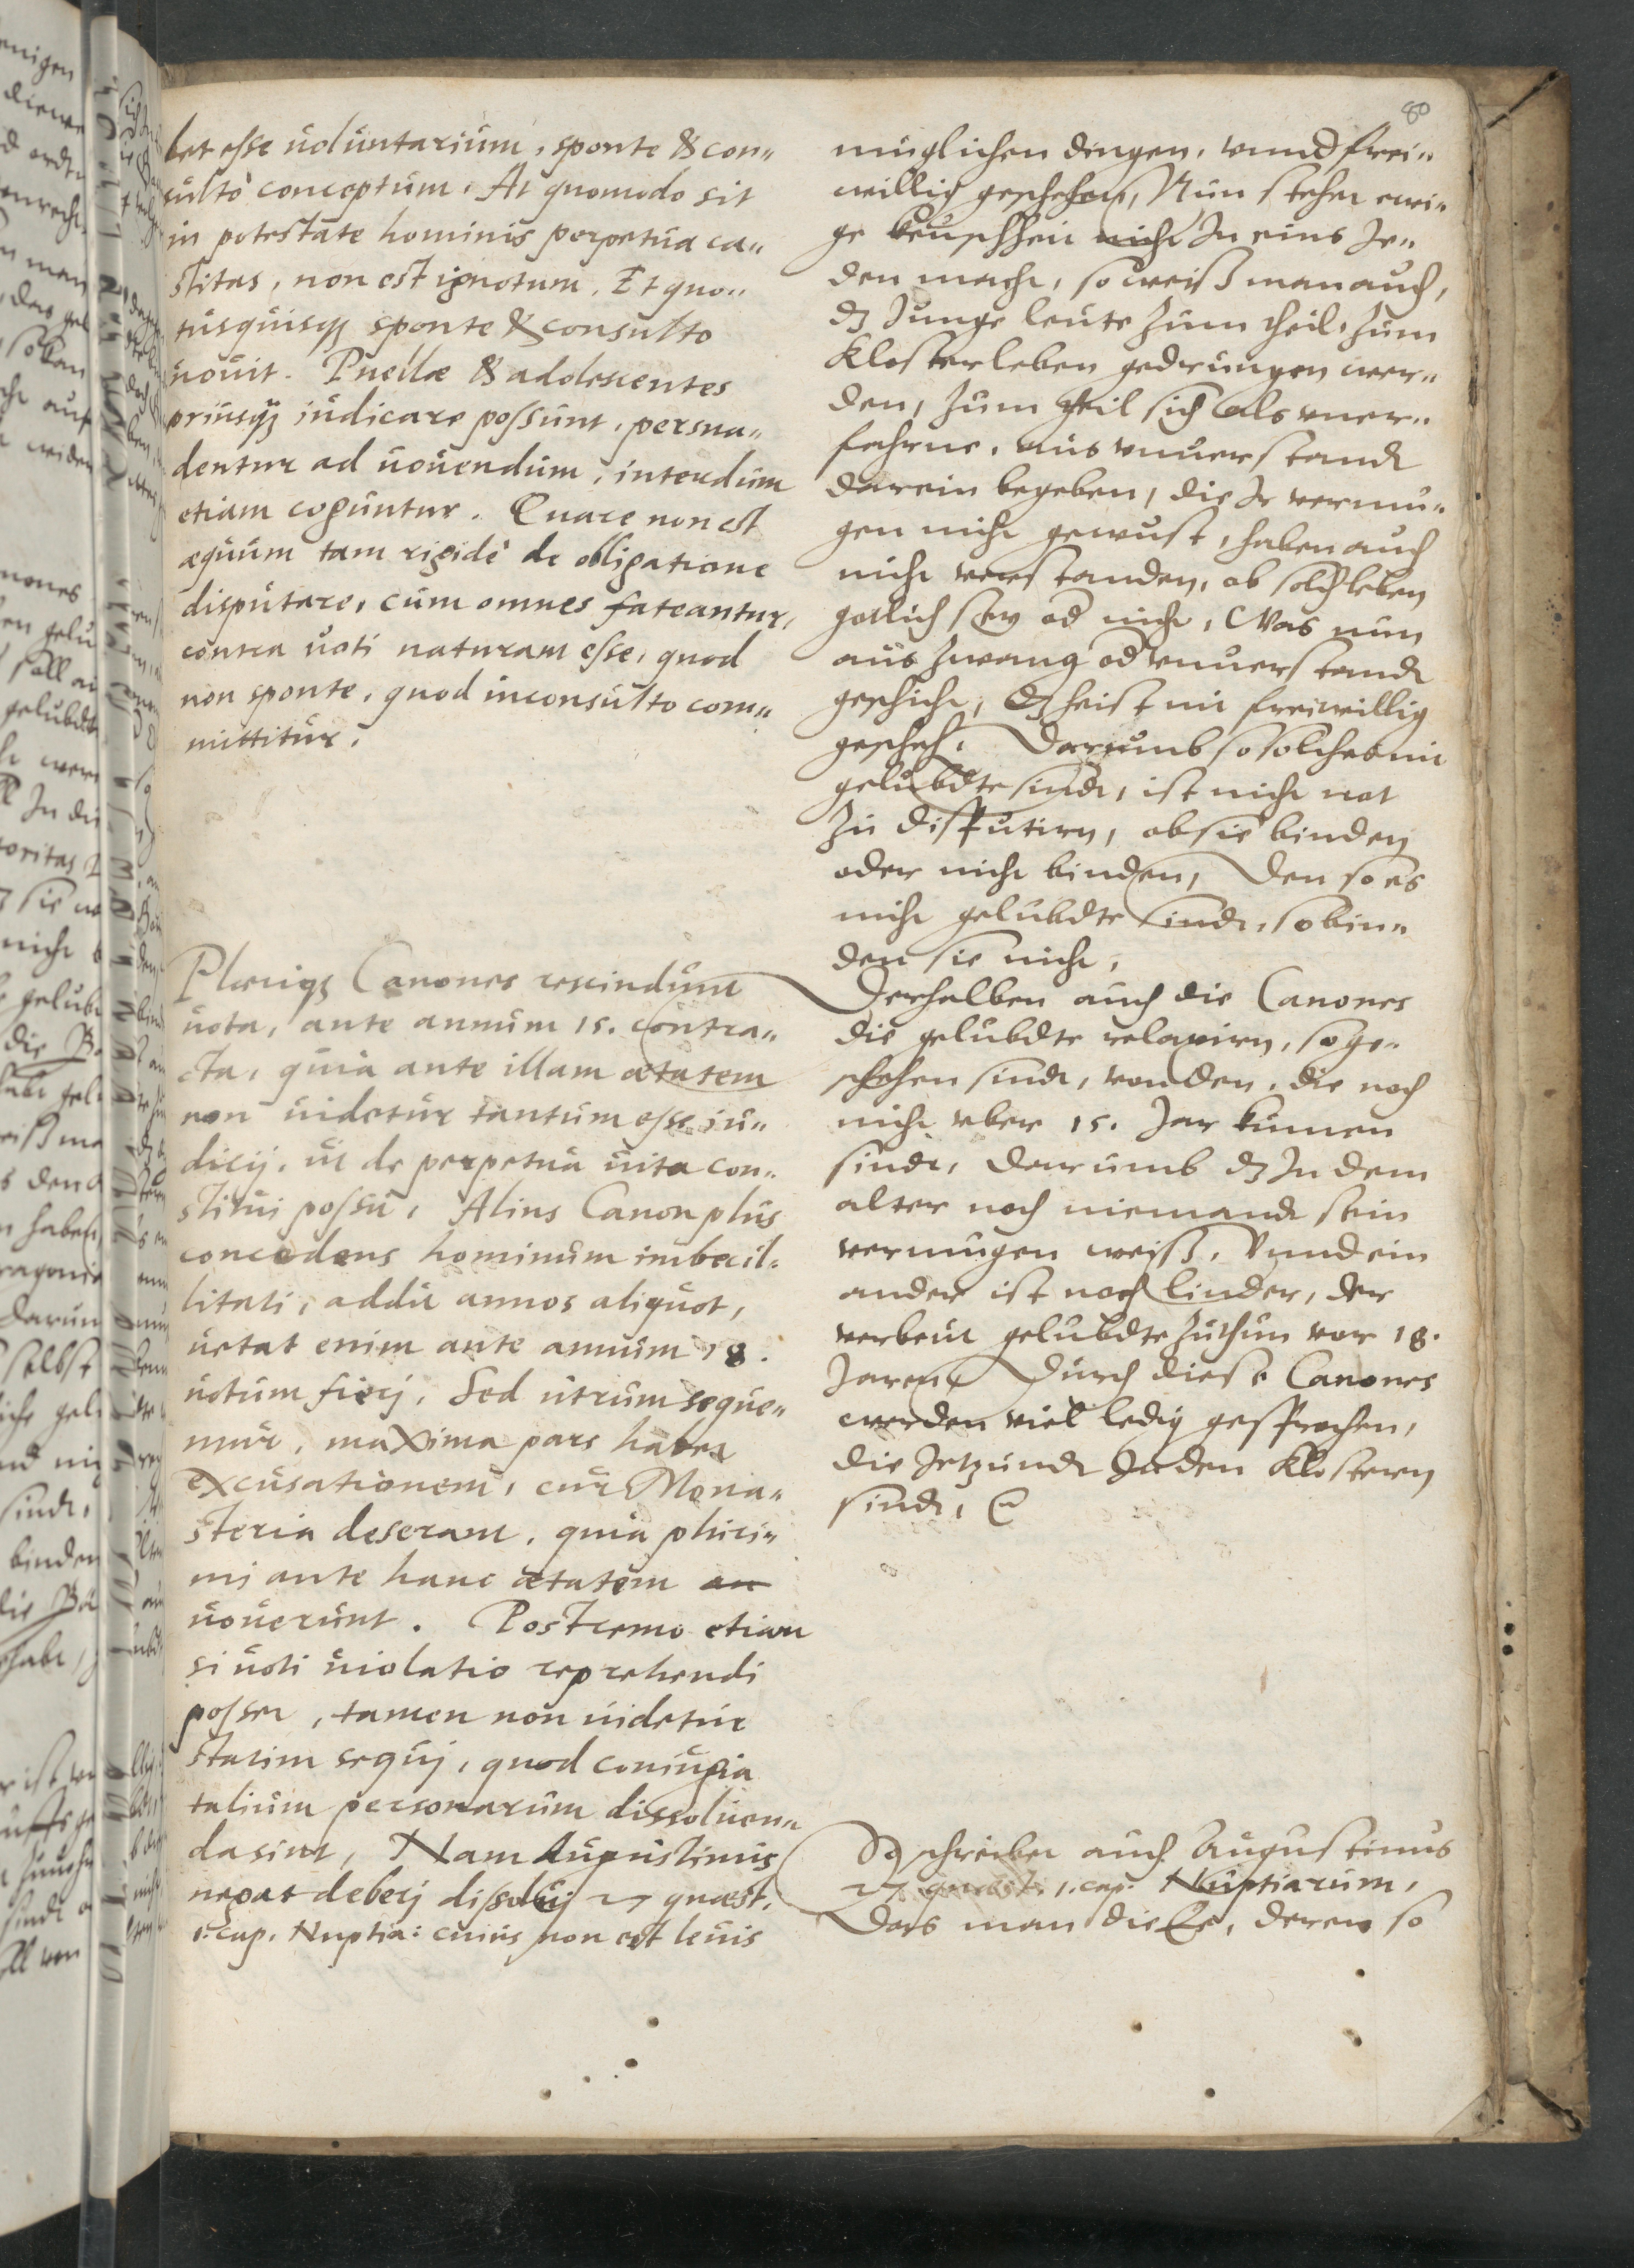 80
bet esse uoluntarium, sponte & con„
sulto conceptum. At quomodo sit
in potestate hominis perpetua ca„
stitas, non est ignotum. Et quo„
tusquisq; sponte & consulto
uouit. Puellæ & adolescentes
priusq; iudicare possunt, persua„
dentur ad uouendum, interdum
etiam coguntur. Quare non est
æquum tam rigidè de obligatione
disputare, cum omnes fateantur,
contra uoti naturam esse, quod
non sponte, quod inconsulto com„
mittitur.
Pleriq; Canones rescindunt
uota, ante annum 15. contra„
cta, quia ante illam ætatem
non uidetur tantum esse iu„
dicij, ut de perpetua uita con„
stitui possit, Alius Canon plus
concedens hominum imbecil„
litati, addit annos aliquot,
uetat enim ante annum 18.
uotum fierj. Sed utrum seque„
mur, maxima pars habet
excusationem, cur Mona„
steria deserant, quia pluri„
mj ante hanc ætatem
uouerunt. Postremo etiam
si uoti uiolatio reprehendi
posset, tamen non uidetur
statim sequj, quod coniugia
talium personarum dissoluen„
da sint, Nam Augustinus
negat deberj dissoluj 27 quæst.
1. cap. Nuptia: cuius non est leuis
müglichen dingen, vnnd frei„
willig geschehen, Nun stehet ewi„
ge keuschheit nicht In eins Je„
den macht, so weiß man auch,
dz Junge leute zum theil, zum
Klosterleben gedrungen wer„
den, zum theil sich als vner„
fahrne, aus vnuerstandt
darein begeben, die Ir vermu„
gen nicht gewust, haben auch
nicht verstanden, ob solch leben
gotlich sey od nicht, Was nun
aus zwang od vnuerstandt
geschicht, dz heist nit freiwillig
gescheh. Darumb so solches nit
gelubdte sindt, ist nicht not
zu disputirn, ob sie binden
oder nicht binden, Den so es
nicht gelubdte sindt, so bin„
den sie nicht,
Derhalben auch die Canones
die gelubdte relaxirn, so ge„
schehen sindt, von den, die noch
nicht vber 15. Jar kumen
sindt, darumb dz In dem
alter noch niemandt sein
vermugen weiß, Vnnd ein
ander ist noch linder, der
verbeut gelubdte zuthun vor 18.
Jaren, Durch diese Canones
werden viel ledig gesprochen,
die Jetzundt In den Klostern
sindt,
So schreibet auch Augustinus
27 quæst. 1. cap. Nuptiarum,
Das man die Ee, deren so